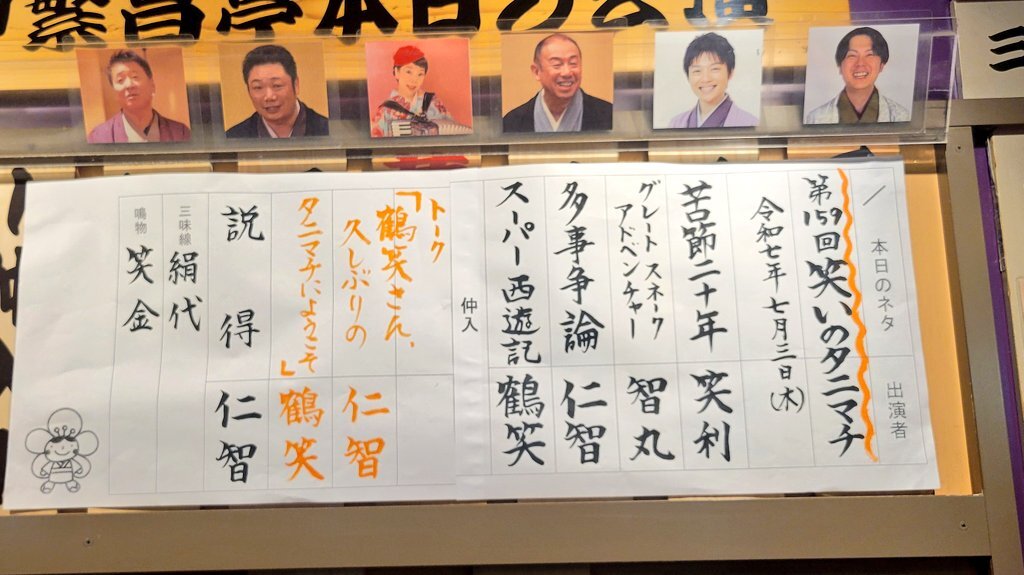 繁昌亭本日の公演
本日のネタ
出演者
第159回笑いのタニマチ
令和七年七月三日(木)
苦節二十年 笑利
グレートスネーク
アドベンチャー 智丸
多事争論 仁智
スーパー西遊記 鶴笑
仲入
トーク
「鶴笑さん、
久しぶりの 仁智
タニマチにようこそ」 鶴笑
説得 仁智
三味線 絹代
鳴物 笑金